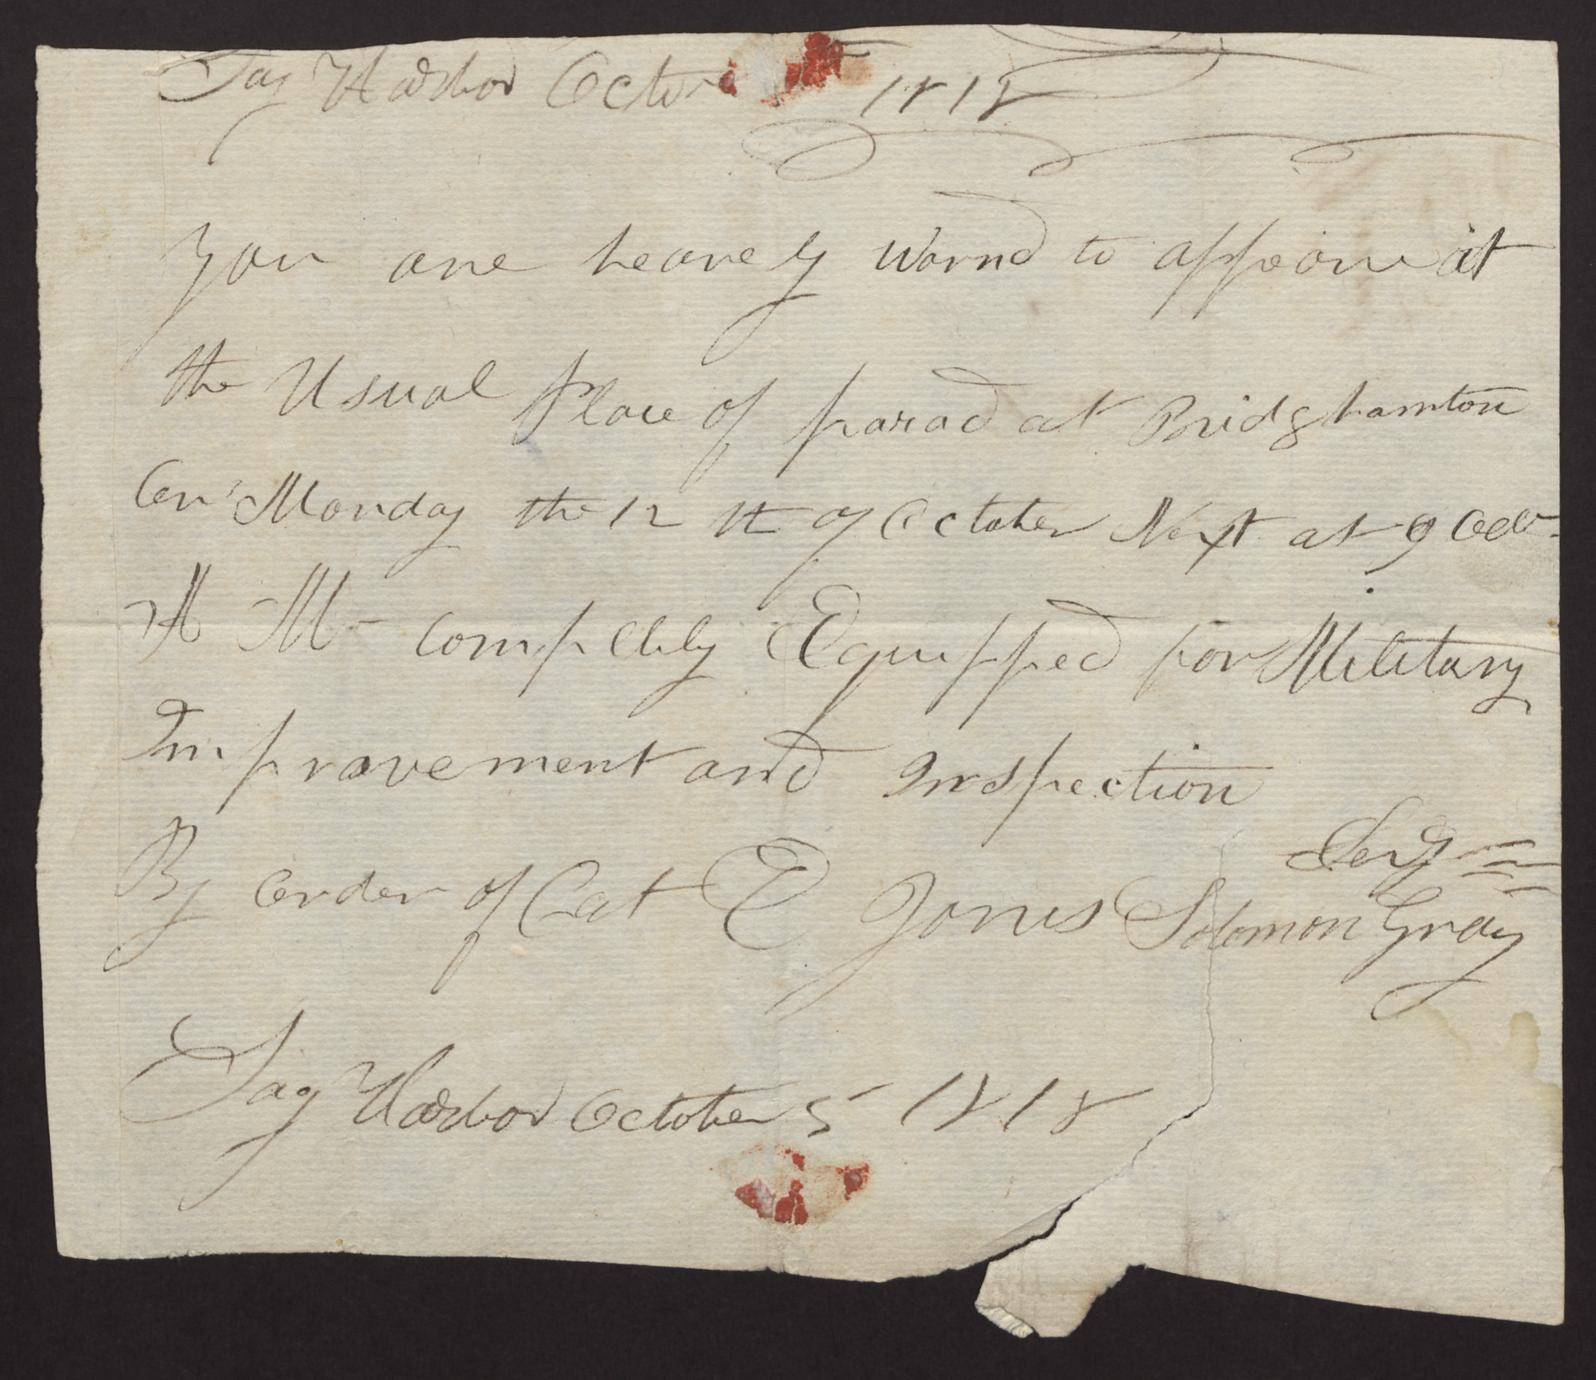 Sag Harbor October 1818
You are heareby Warnd to appeare at
the Usual Place of parad at Bridghamton
On Monday the 12 th of October Next at 9 Oclk
A M - Completely Equipped for Military
Improvement and Inspection
Serg
By Order of Cat E Jones Solomon Gray
Sag Harbor October 5 1818